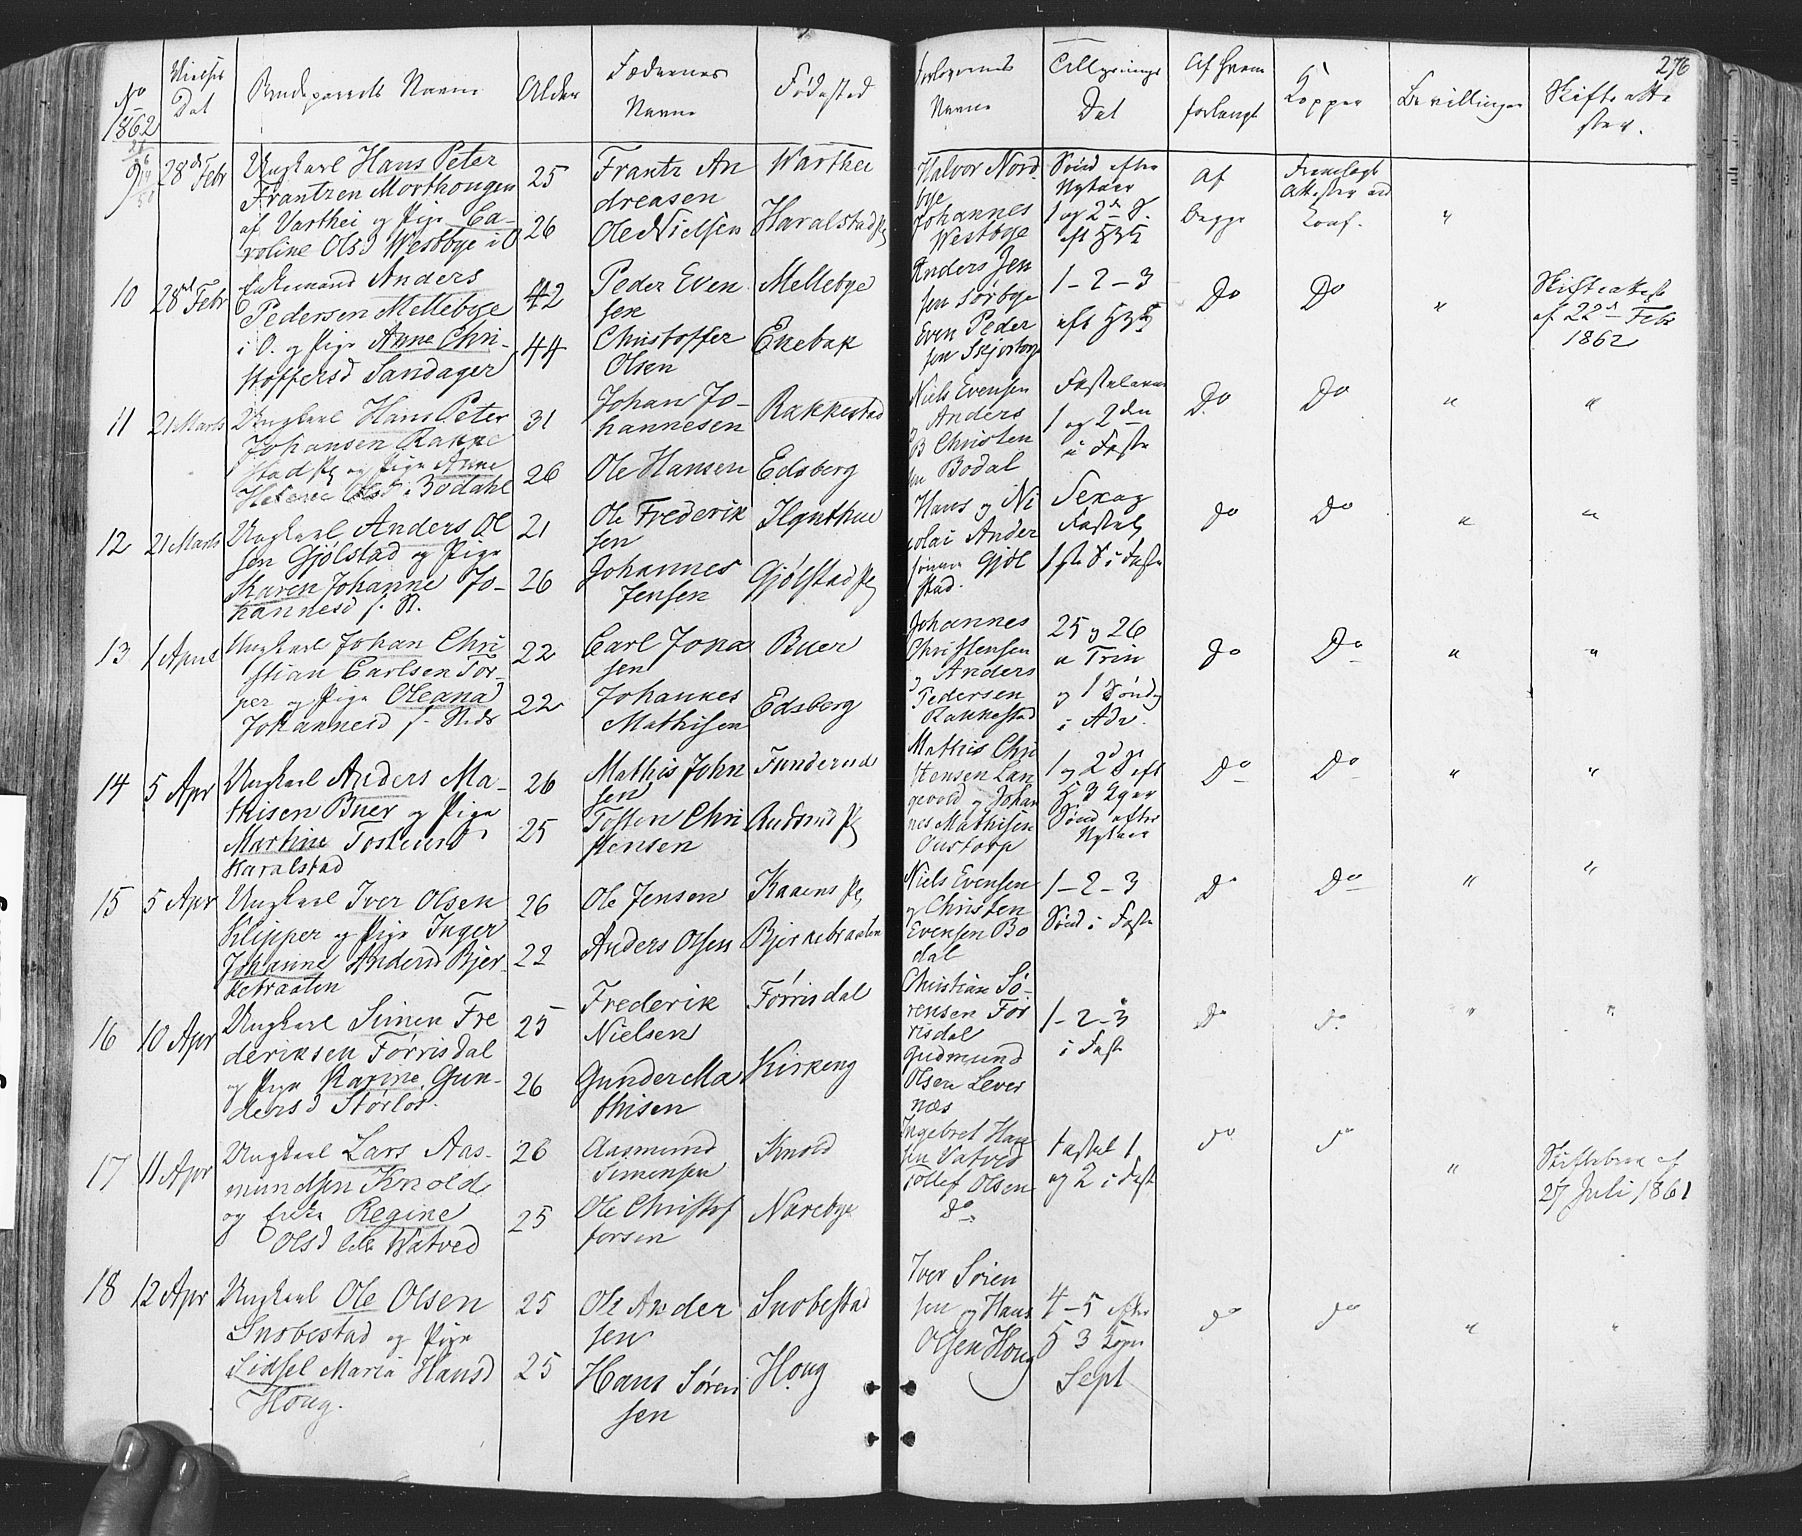 No
1862
Vielses
Dat
Brudeparrets Navne
Alder
Fædrenes
Navne
Fødested
Forlovernes
Navne
Tillysnings
Dat
Af hvem
forlangt
Kopper
Bevillinger
Skifteatte
ster.
276
9
28de Febr
Ungkarl Hans Peter
Frantzen Morthougen
af Varthei og Pige Ca-
roline Olsd Westbye i O
25
26
Frantz An
dreasen
Ole Nielsen
Warthei
Haralstad
Halvor Nord
bye
Johannes
Westbye
Sønd efter
Nytaar
1 og 2de S.
eft H3K
Af
begge
Fremlagt
Attester
"
10
28de Febr
Enkemand Anders
Pedersen Mellebye
i O. og Pige Anne Chri-
stoffersd Sandager
42
44
Peder Even
sen
Christoffer
Olsen
Mellebye
Enebak
Anders Jen
sen Sørbye
Even Peder
sen
1-2-3
eft H3K
Do
Do
"
Skifteattest
af 22de Febr
1862
11
21 Marts
Ungkarl Hans Peter
Johansen Rakke
stad og Pige Anne
Helene Olsd i Bodahl
31
26
Johan Jo-
hannesen
Ole Hansen
Rakkestad
Edsberg
Niels Evensen
og Anders
B Christen
sen Bodal
Fastelavn
1 og 2den
i Faste
Do
Do
"
"
12
21 Marts
Ungkarl Anders Ol
sen Gjølstad og Pige
Karen Johanne Jo-
hannesd f. St.
21
26
Ole Frederik
sen
Johannes
Jensen
Gjølstad
Hans og Ni
colai Ander
sønner Gjøl
stad.
Sexag
Fastel
1ste S i Faste
Do
Do
"
"
13
1 April
Ungkarl Johan Chri
stian Carlsen Tor-
per og Pige Oleana
Johannesd f. Steds
22
22
Carl Jona
sen
Johannes
Mathisen
Buer
Edsberg
Johannes
Christensen
og Anders
Pedersen
Rakkestad
25 og 26
e Trin
og 1 Søndag
i Adv.
Do
Do
"
"
14
5 Apr
Ungkarl Anders Ma-
thisen Buer og Pige
Martine Tostensd
Haralstad
26
25
Mathis John
sen
Tosten Chri
stensen
Funderud
Mathis Chri
stensen Lan
gevold og Johan
nes Mathisen
Oustorp
1 og 2d S eft
H 3 Kger
Sønd efter
Nytaar
Do
Do
"
"
15
5 Apr
Ungkarl Iver Olsen
Klipper og Pige Inger
Johanne Andersd Bjer-
kebraaten
26
22
Ole Jensen
Anders Olsen
Kaaens
Bjerkebraaten
Niels Evensen
og Christen
Evensen Bo
dal
1-2-3
Sønd i Faste
Do
Do
"
"
16
10 Apr
Ungkarl Simen Fre
deriksen Førrisdal
og Pige Karine Gun-
dersd Storlos.
25
26
Frederik
Nielsen
Gunder Ma
thisen
Førrisdal
Kirkeng
Christian Sø-
rensen Før
risdal
Gudmund
Olsen Lever
næs
1-2-3
i Faste
Do
Do
"
"
17
11 Apr
Ungkarl Lars Aas-
mundsen Knold
og Enke Regine
Olsd Watved
26
25
Aasmund
Simensen
Ole Christof
fersen
Knold
Narebye
Ingebret Han
sen Vatved
Tollef Olsen
Do
Fastel 1
og 2 i Fast
Do
Do
"
Skiftebrev af
27 Juli 1861
18
12 Apr
Ungkarl Ole Olsen
Snobestad og Pige
Sidsel Maria Hansd
Houg.
25
25
Ole Ander
sen
Hans Søren
sen
Snobestad
Houg
Iver Søren
sen og Hans
Olsen Houg
4-5 efter
H 3 Konger
Sept
Do
Do
"
"